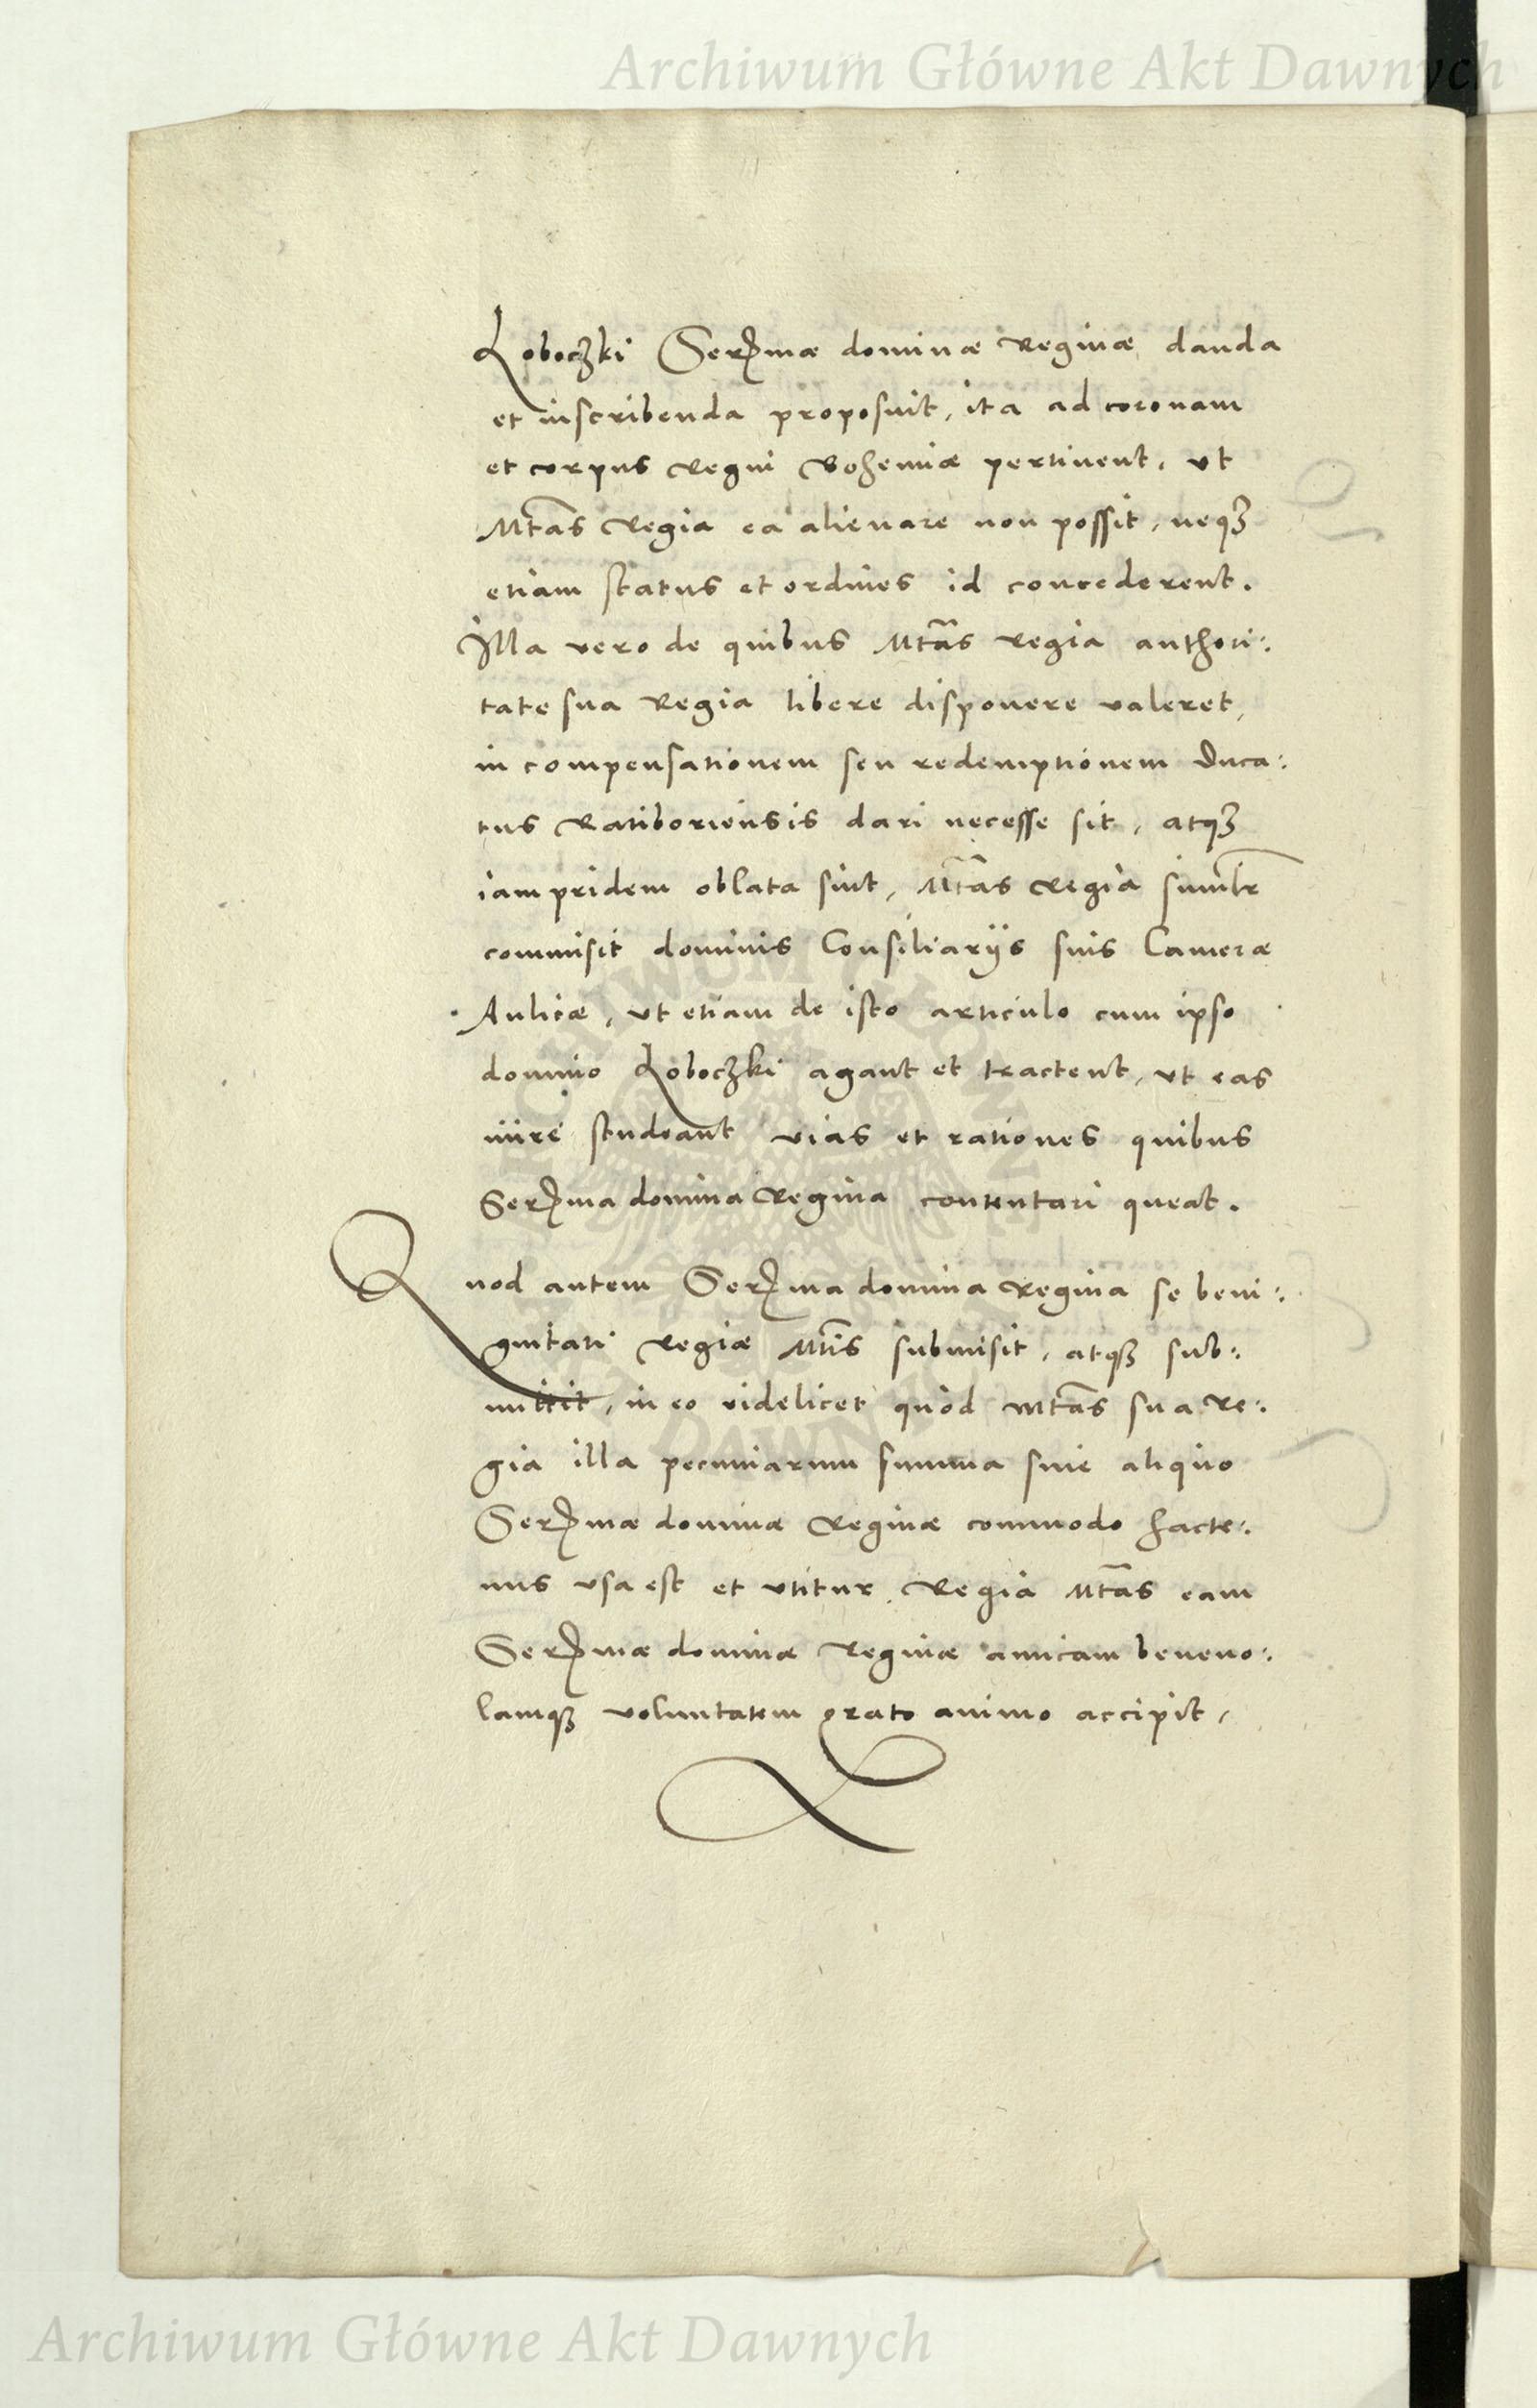 Archiwum Główne Akt Dawnych
Loboczki Sermae dominae Reginae danda
et inscribenda proposuit, ita ad coronam
et corpus Regni Bohemiae pertinent, ut
Mtas Regia ea alienare non possit, neqз
etiam status et ordines id concederent.
Illa vero de quibus Mtas Regia authori:
tate sua Regia libere disponere valeret,
in compensationem seu redemptionem Duca:
tus Ratiboriensis dari necesse sit, atqз
iam pridem oblata sint, Mtas Regia
commisit dominis Consiliarijs suis Camerae
Aulicae, ut etiam de isto articulo cum ipso
domino Loboczki agant et tractent, ut eas
inire studeant vias et rationes quibus
Serma domina Regina contentari queat.
Quod autem Serma domina Regina se beni:
gnitati Regiae Mtis submisit, atqз sub:
mittit, in eo videlicet quod Mtas sua Re:
gia illa pecuniarum summa sine aliquo
Sermae dominae Reginae commodo hacte:
nus usa est et utitur, Regia Mtas eam
Sermae dominae Reginae amicam beneuo:
lamqз voluntatem grato animo accipit,
Archiwum Główne Akt Dawnych